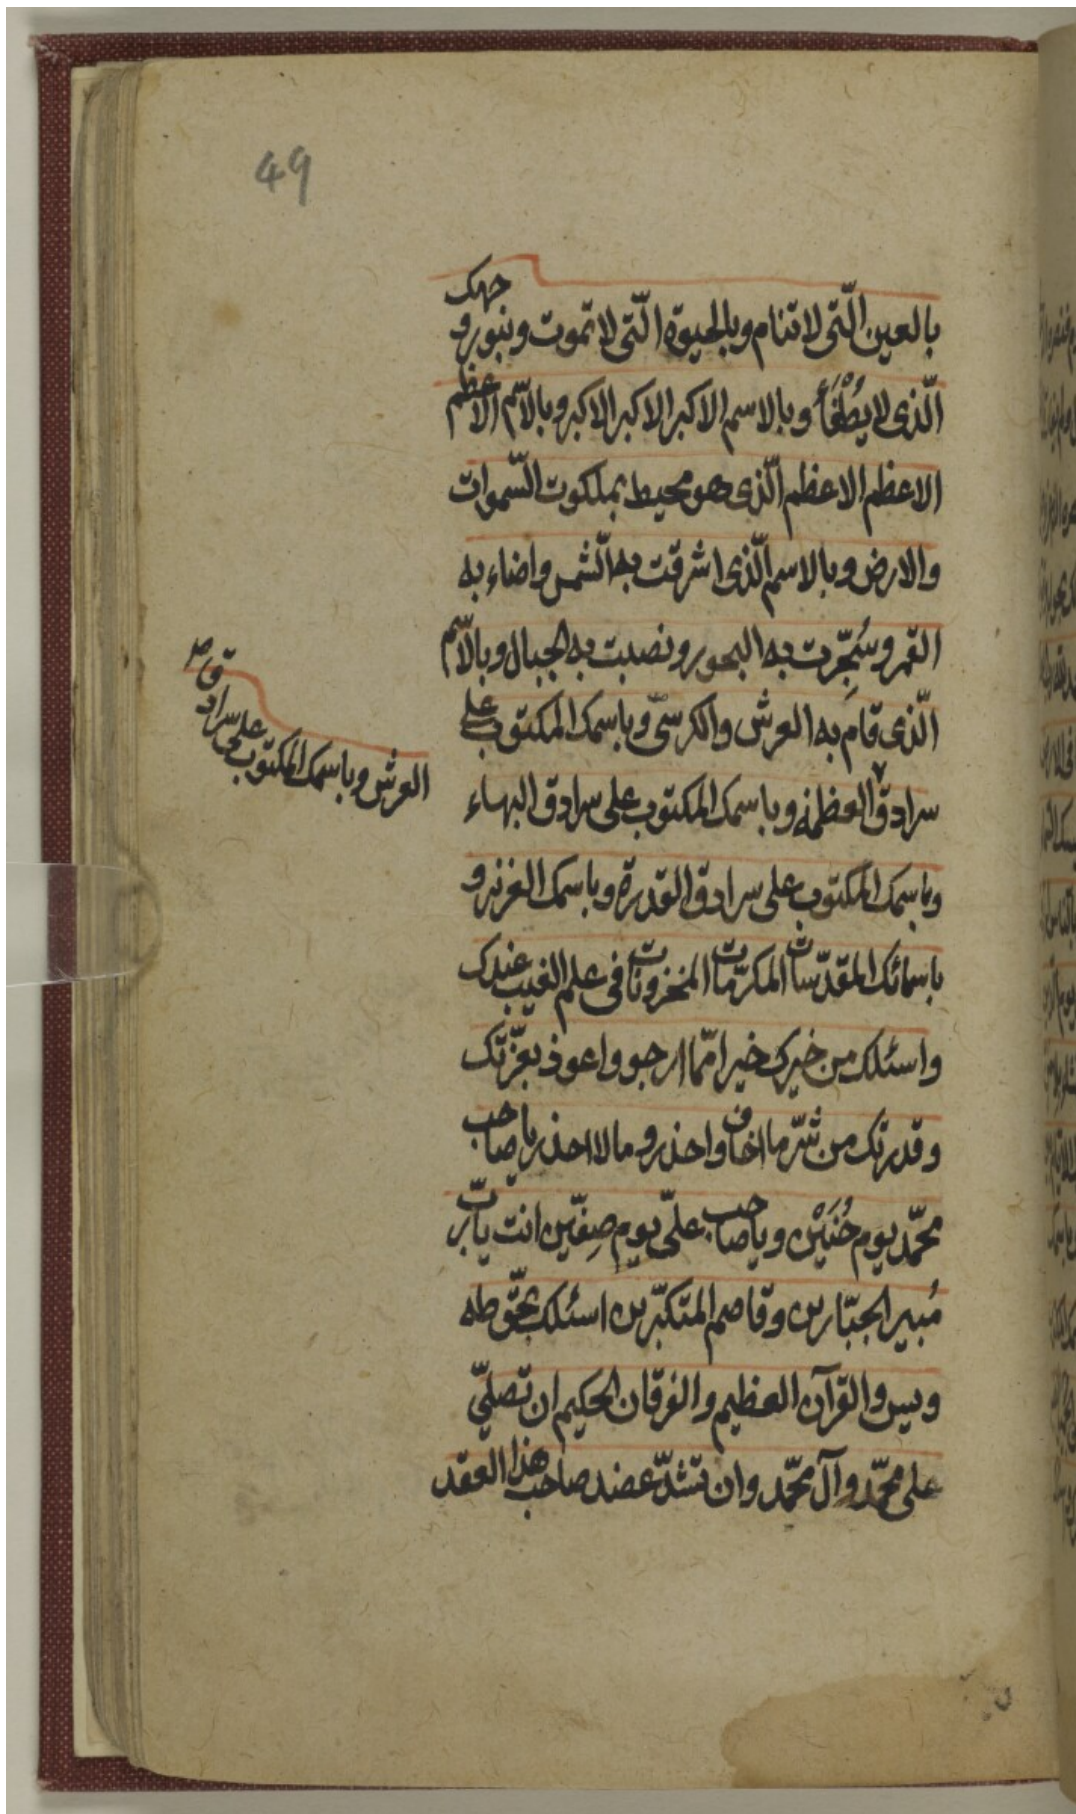 49
بالعين الّتى لا تنام وبالحيوة الّتى لا تموت وبنور وجهك
الّذى لا يُطْفَأُ وبالاسم الاكبر الاكبر الاكبر وبالاسم الاعظم
الاعظم الاعظم الّذى هو محيط بملكوت السّموات
والارض وبالاسم الّذى اشرقت به الشّمس واضاء به
القمر وسُجِّرت به البحور ونصبت به الجبال وبالاسم
الّذى قام به العرش والكرسىّ وباسمك المكتوب على
سرادق العظمة وباسمك المكتوب على سرادق البهاء
وباسمك المكتوب على سرادق القدرة وباسمك العزيز و
باسمائك المقدّسات المكرّمات المخزونات فى علم الغيب عندك
واسئلك من خيرك خيرا ممّا ارجو واعوذ بعزّتك
وقدرتك من شرّ ما اخاف واحذر وما لا احذر يا صاحب
محمّد يوم حُنَيْن ويا صاحب علىّ يوم صِفّين انت يا ربّ
مُبير الجبّارين وقاصم المتكبّرين اسئلك بحقّ طه
ويس والقرآن العظيم والفرقان الحكيم ان تصلّى
على محمّد وآل محمّد وان تشدّ عضد صاحب هذا العقد
العرش وباسمك المكتوب على سرادق